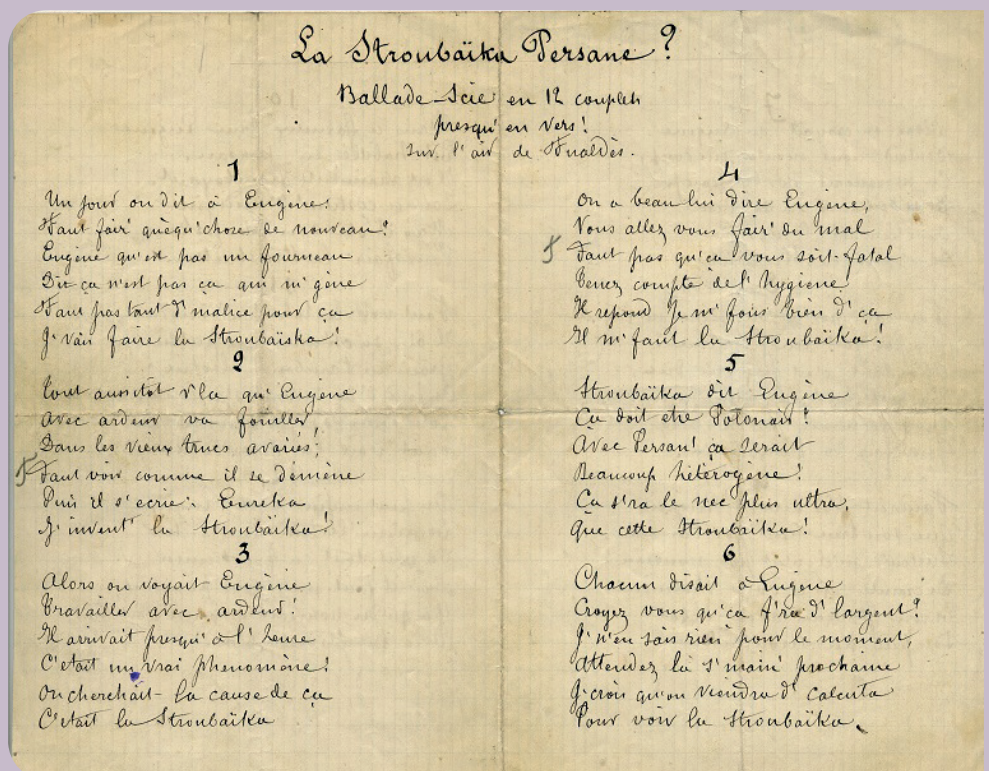 La Stroubaïka Persane ?
Ballade-Scie en 12 couplets
presqu'en vers !
sur l'air de Fualdès.
1
Un jour on dit à Eugène :
Faut fair' quéqu'chose de nouveau ?
Eugène qu'est pas un fourneau
Dit ça n'est pas ça qui m'gène
Faut pas tant d'malice pour ça
J'vais faire la Stroubaïska !
2
Tout aussitôt v'la qu'Eugène
Avec ardeur va fouiller,
Dans les vieux trucs avariés ;
Faut voir comme il se démène
Puis il s'ecrie : Eureka
J'invent' la Stroubaïka !
3
Alors on voyait Eugène
Travailler avec ardeur !
Il arrivait presqu'à l'heure
C'etait un vrai phenomène !
On cherchait la cause de ça
C'etait la Stroubaïka
4
On a beau lui dire Eugène,
Vous allez vous fair' du mal
Faut pas qu'ça vous soit fatal
Tenez compte de l'hygiene
Il repond Je m'fous bien d'ça
Il m'faut la Stroubaïka !
5
Stroubaïka dit Eugène
Ca doit etre Polonais !
Avec Persan' ça serait
Beaucoup héterogène !
Ca s'ra le nec plus ultra,
Que cette Stroubaïka !
6
Chacun disait à Eugène
Croyez vous qu'ça f'ra d'largent ?
J'n'en sais rien pour le moment,
Attendez la s'main' prochaine
J'crois qu'on viendra d'Calcuta
Pour voir la Stroubaïka.